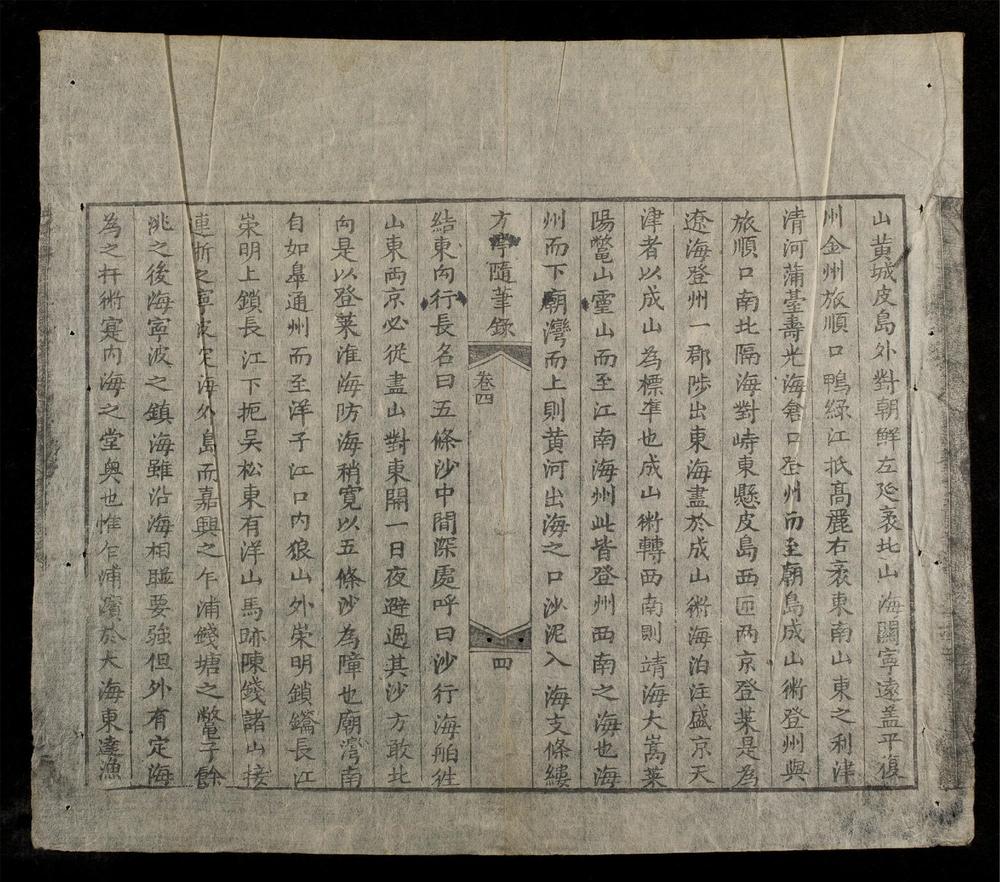 山黄城皮島外對朝鮮左延袤北山海關寧遠盖平復
州金州旅順口鴨綠江抵髙麗右袤東南山東之利津
清河蒲臺壽光海倉口登州而至廟島成山衛登州與
旅順口南北隔海對峙東懸皮島西匝两京登萊是為
遼海登州一郡陟出東海盡於成山衛海泊注盛京天
津者以成山為標準也成山衛轉西南則靖海大嵩萊
陽鰲山靈山而至江南海州此皆登州西南之海也海
州而下廟灣而上則黄河出海之口沙泥入海支條縷
方亭隨筆錄
卷四
四
結東向行長名曰五條沙中間深處呼曰沙行海舶徃
山東两京必從盡山對東開一日夜避過其沙方敢北
向是以登萊淮海防海稍寬以五條沙為障也廟灣南
自如臯通州而至洋子江口内狼山外崇明鎖鑰長江
崇明上鎖長江下扼吴松東有洋山馬跡陳錢諸山接
連浙之寧波定海外島而嘉興之乍浦錢塘之鱉子餘
姚之後海寧波之鎮海雖沿海相聯要強但外有定海
為之扞衛寔内海之堂奥也惟乍浦濱於大海東達漁